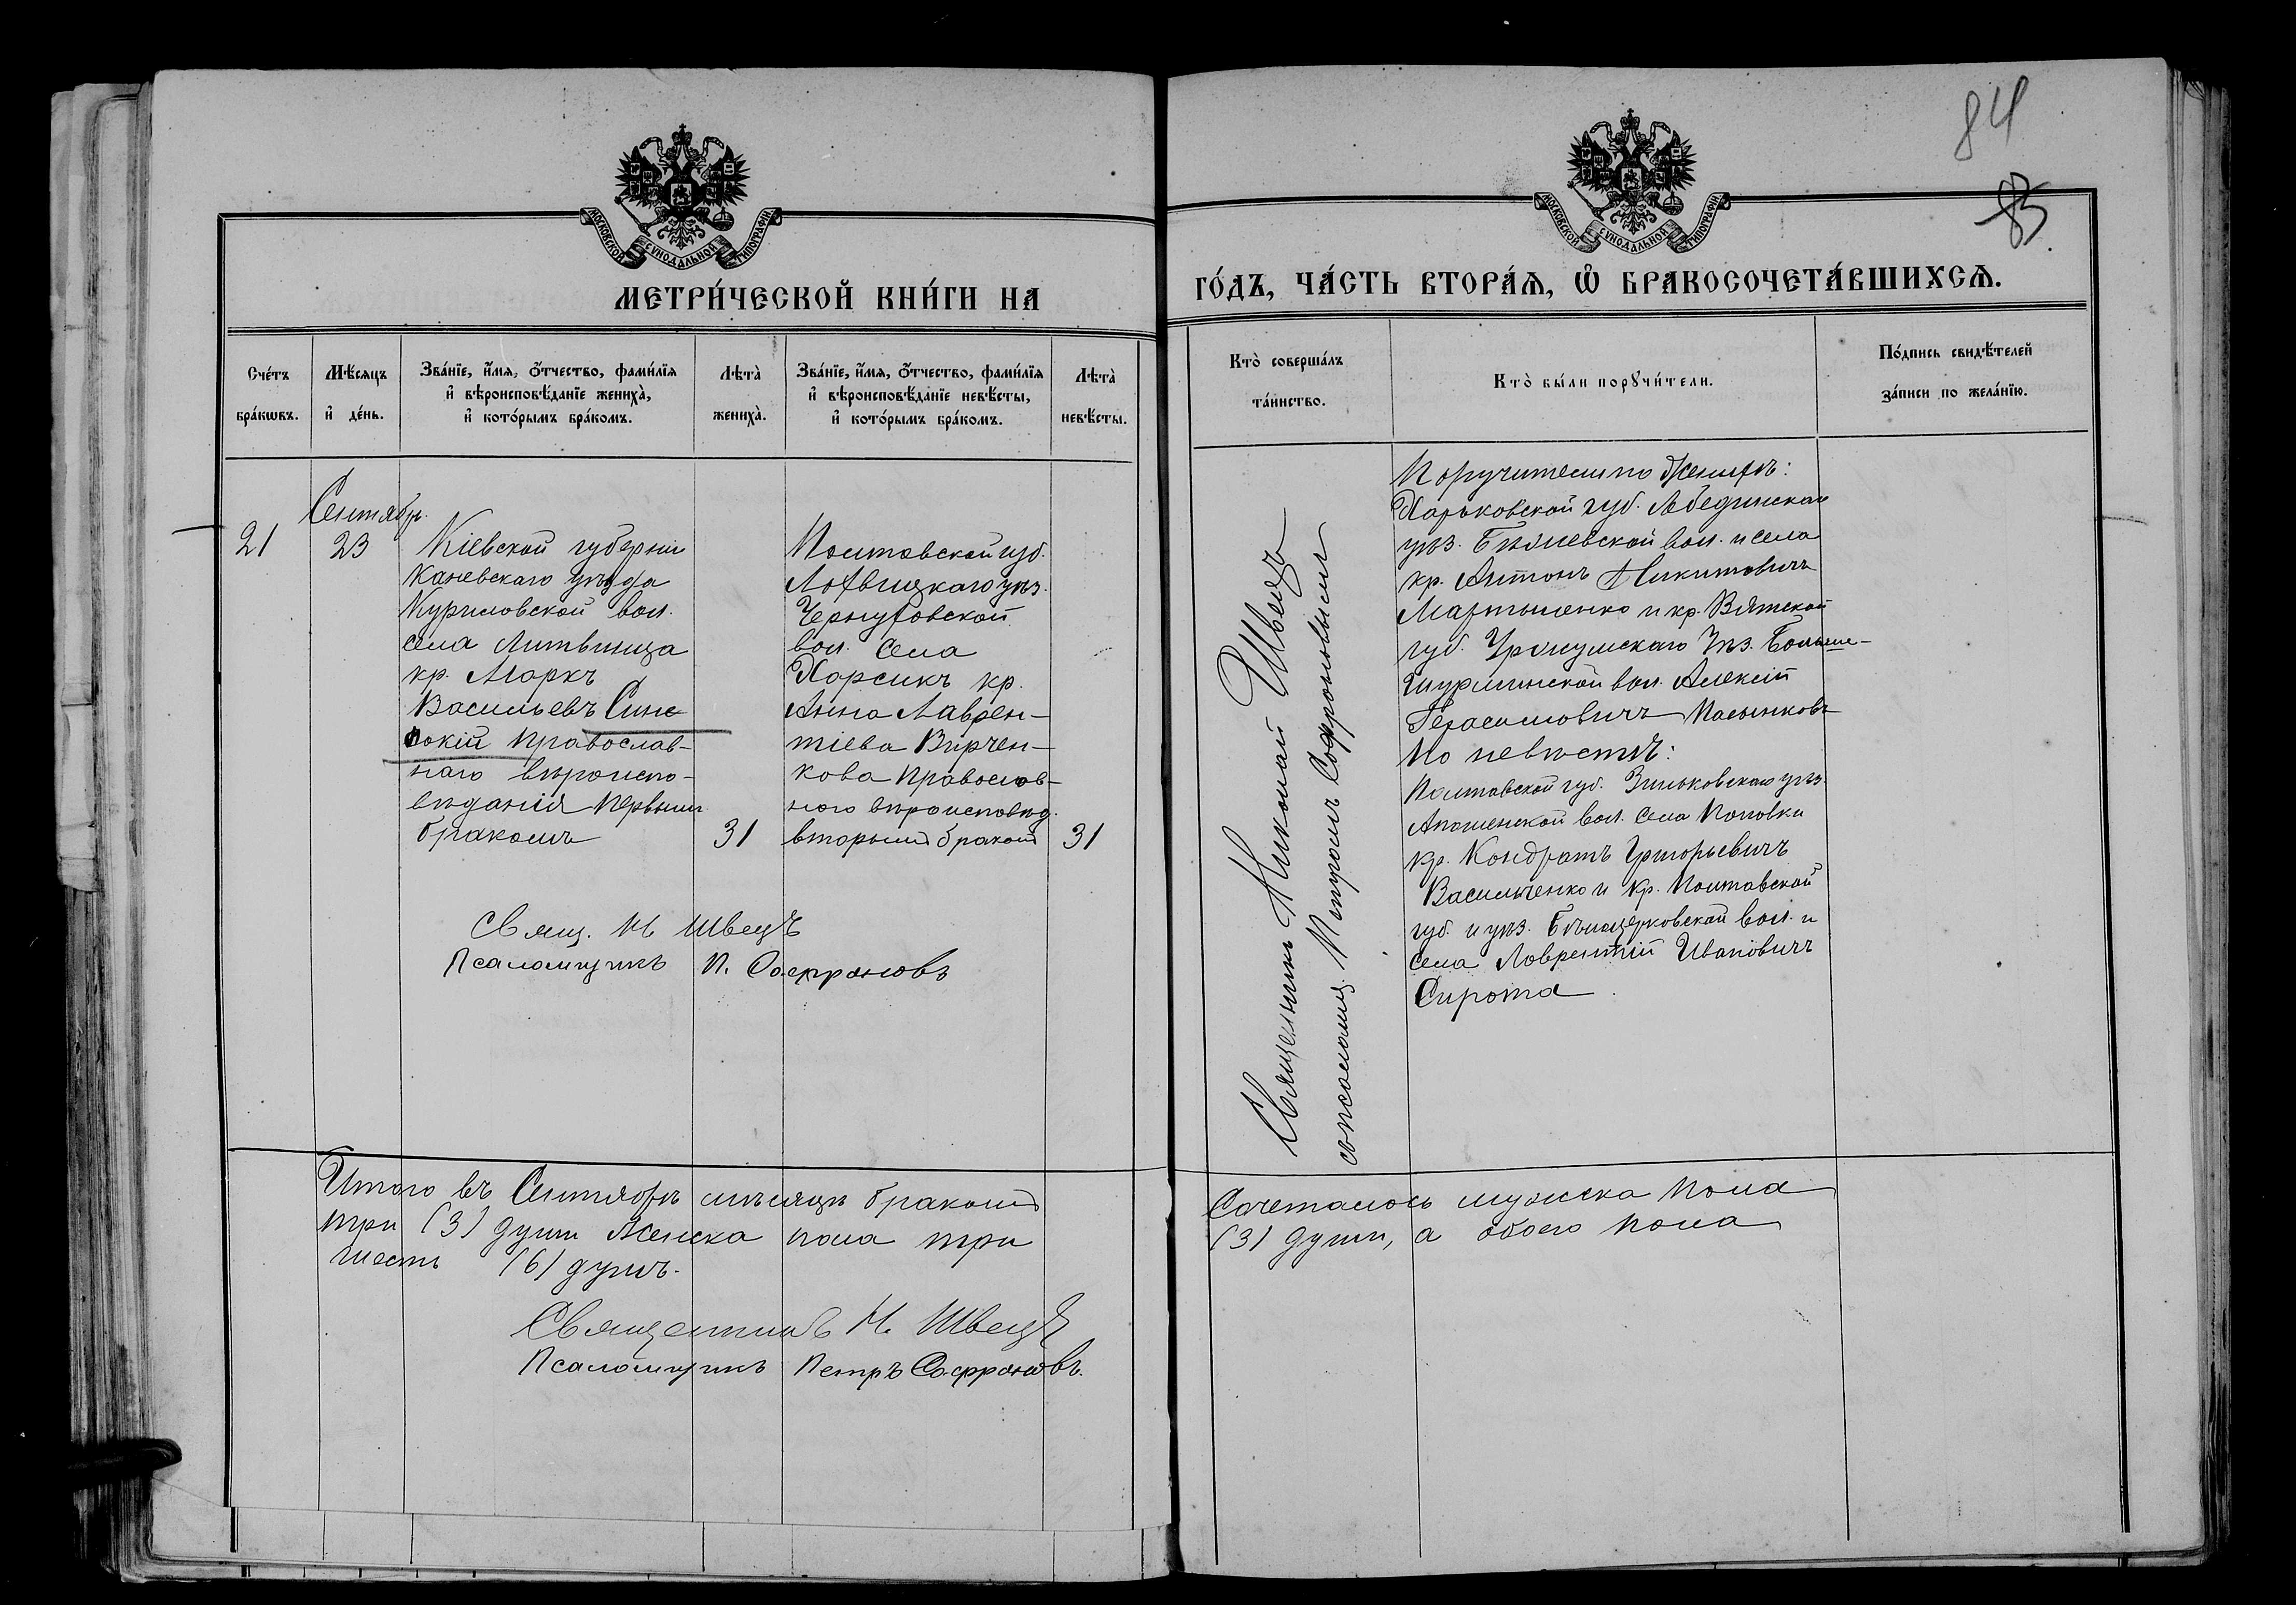 84
83
МОСКОВСКОЙ СѴНОДАЛЬНОЙ ТИПОГРАФІИ
МОСКОВСКОЙ СѴНОДАЛЬНОЙ ТИПОГРАФІИ
МЕТРИ́ЧЕСКОЙ КНИ́ГИ НА
ГО́ДЪ, ЧА́СТЬ ВТОРА́Ѧ, Ѡ҆ БРАКОСОЧЕТА́ВШИХСѦ.
Сче́тъ бра́кѡвъ.
Мѣ́сяцъ и҆ де́нь.
Зва́нїе, и҆́мя, ѻ҆́тчество, фами́лїя
и҆ вѣроисповѣ́данїе жениха̀,
и҆ кото́рымъ бра́комъ.
Лѣта̀ жениха̀.
Зва́нїе, и҆́мя, ѻ҆́тчество, фами́лїя
и҆ вѣроисповѣ́данїе невѣ́сты,
и҆ кото́рымъ бра́комъ.
Лѣта̀ невѣ́сты.
Кто̀ соверша́лъ
та́инство.
Кто̀ бы́ли порꙋчи́тели.
По́дпись свидѣ́телей
за́писи по жела́нїю.
Сентябрь.
21
23
Кіевской губерніи
Каневскаго уѣзда
Куриловской вол.
села Литвинца
кр. Маркъ
Васильевъ Сине
окій Православ-
наго вѣроиспо-
вѣданія первымъ
бракомъ
31
Полтавской губ.
Лохвицкаго уѣз.
Чернуховской
вол. села
Харсикъ кр.
Анна Лаврен-
тіева Вирчен-
кова Православ-
наго вѣроисповѣд.
вторымъ бракомъ
31
Свящ. Н Швецъ
Псаломщикъ П. Софроновъ
Священникъ Николай Швецъ
съ псаломщ. Петромъ Софроновымъ
Поручители по женихѣ:
Харьковской губ. Лебединскаго
уѣз. вол. и села
кр. Антонъ Никитовичъ
Мартыненко и кр. Вятской
губ. Уржумскаго Уѣз. Больше-
Шурминской вол. Алексій
Герасимовичъ Пасынковъ
По невѣстѣ:
Полтавской губ. Зиньковскаго уѣз.
вол. села Поповки
кр. Кондратъ Григорьевичъ
Васильченко и кр. Полтавской
губ. и уѣз. Бѣлоцерковской вол. и
села Лаврентій Ивановичъ
Сирота
Итого въ Сентябрѣ мѣсяцѣ бракомъ
Сочеталось мужска пола
три (3) души Женска пола три
(3) души, а обоего пола
шесть (6) душъ.
Священникъ Н. Швецъ
Псаломщикъ Петръ Софроновъ.